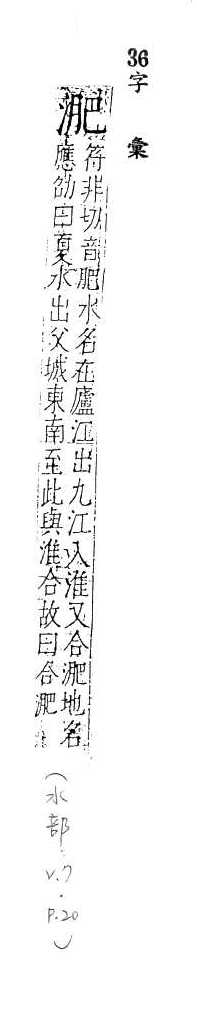 36
字彙
淝
符非切音肥水名在廬江出九江入淮又合淝地名
應劭曰夏水出父城東南至此與淮合故曰合淝
(水部 V.7. P.20)